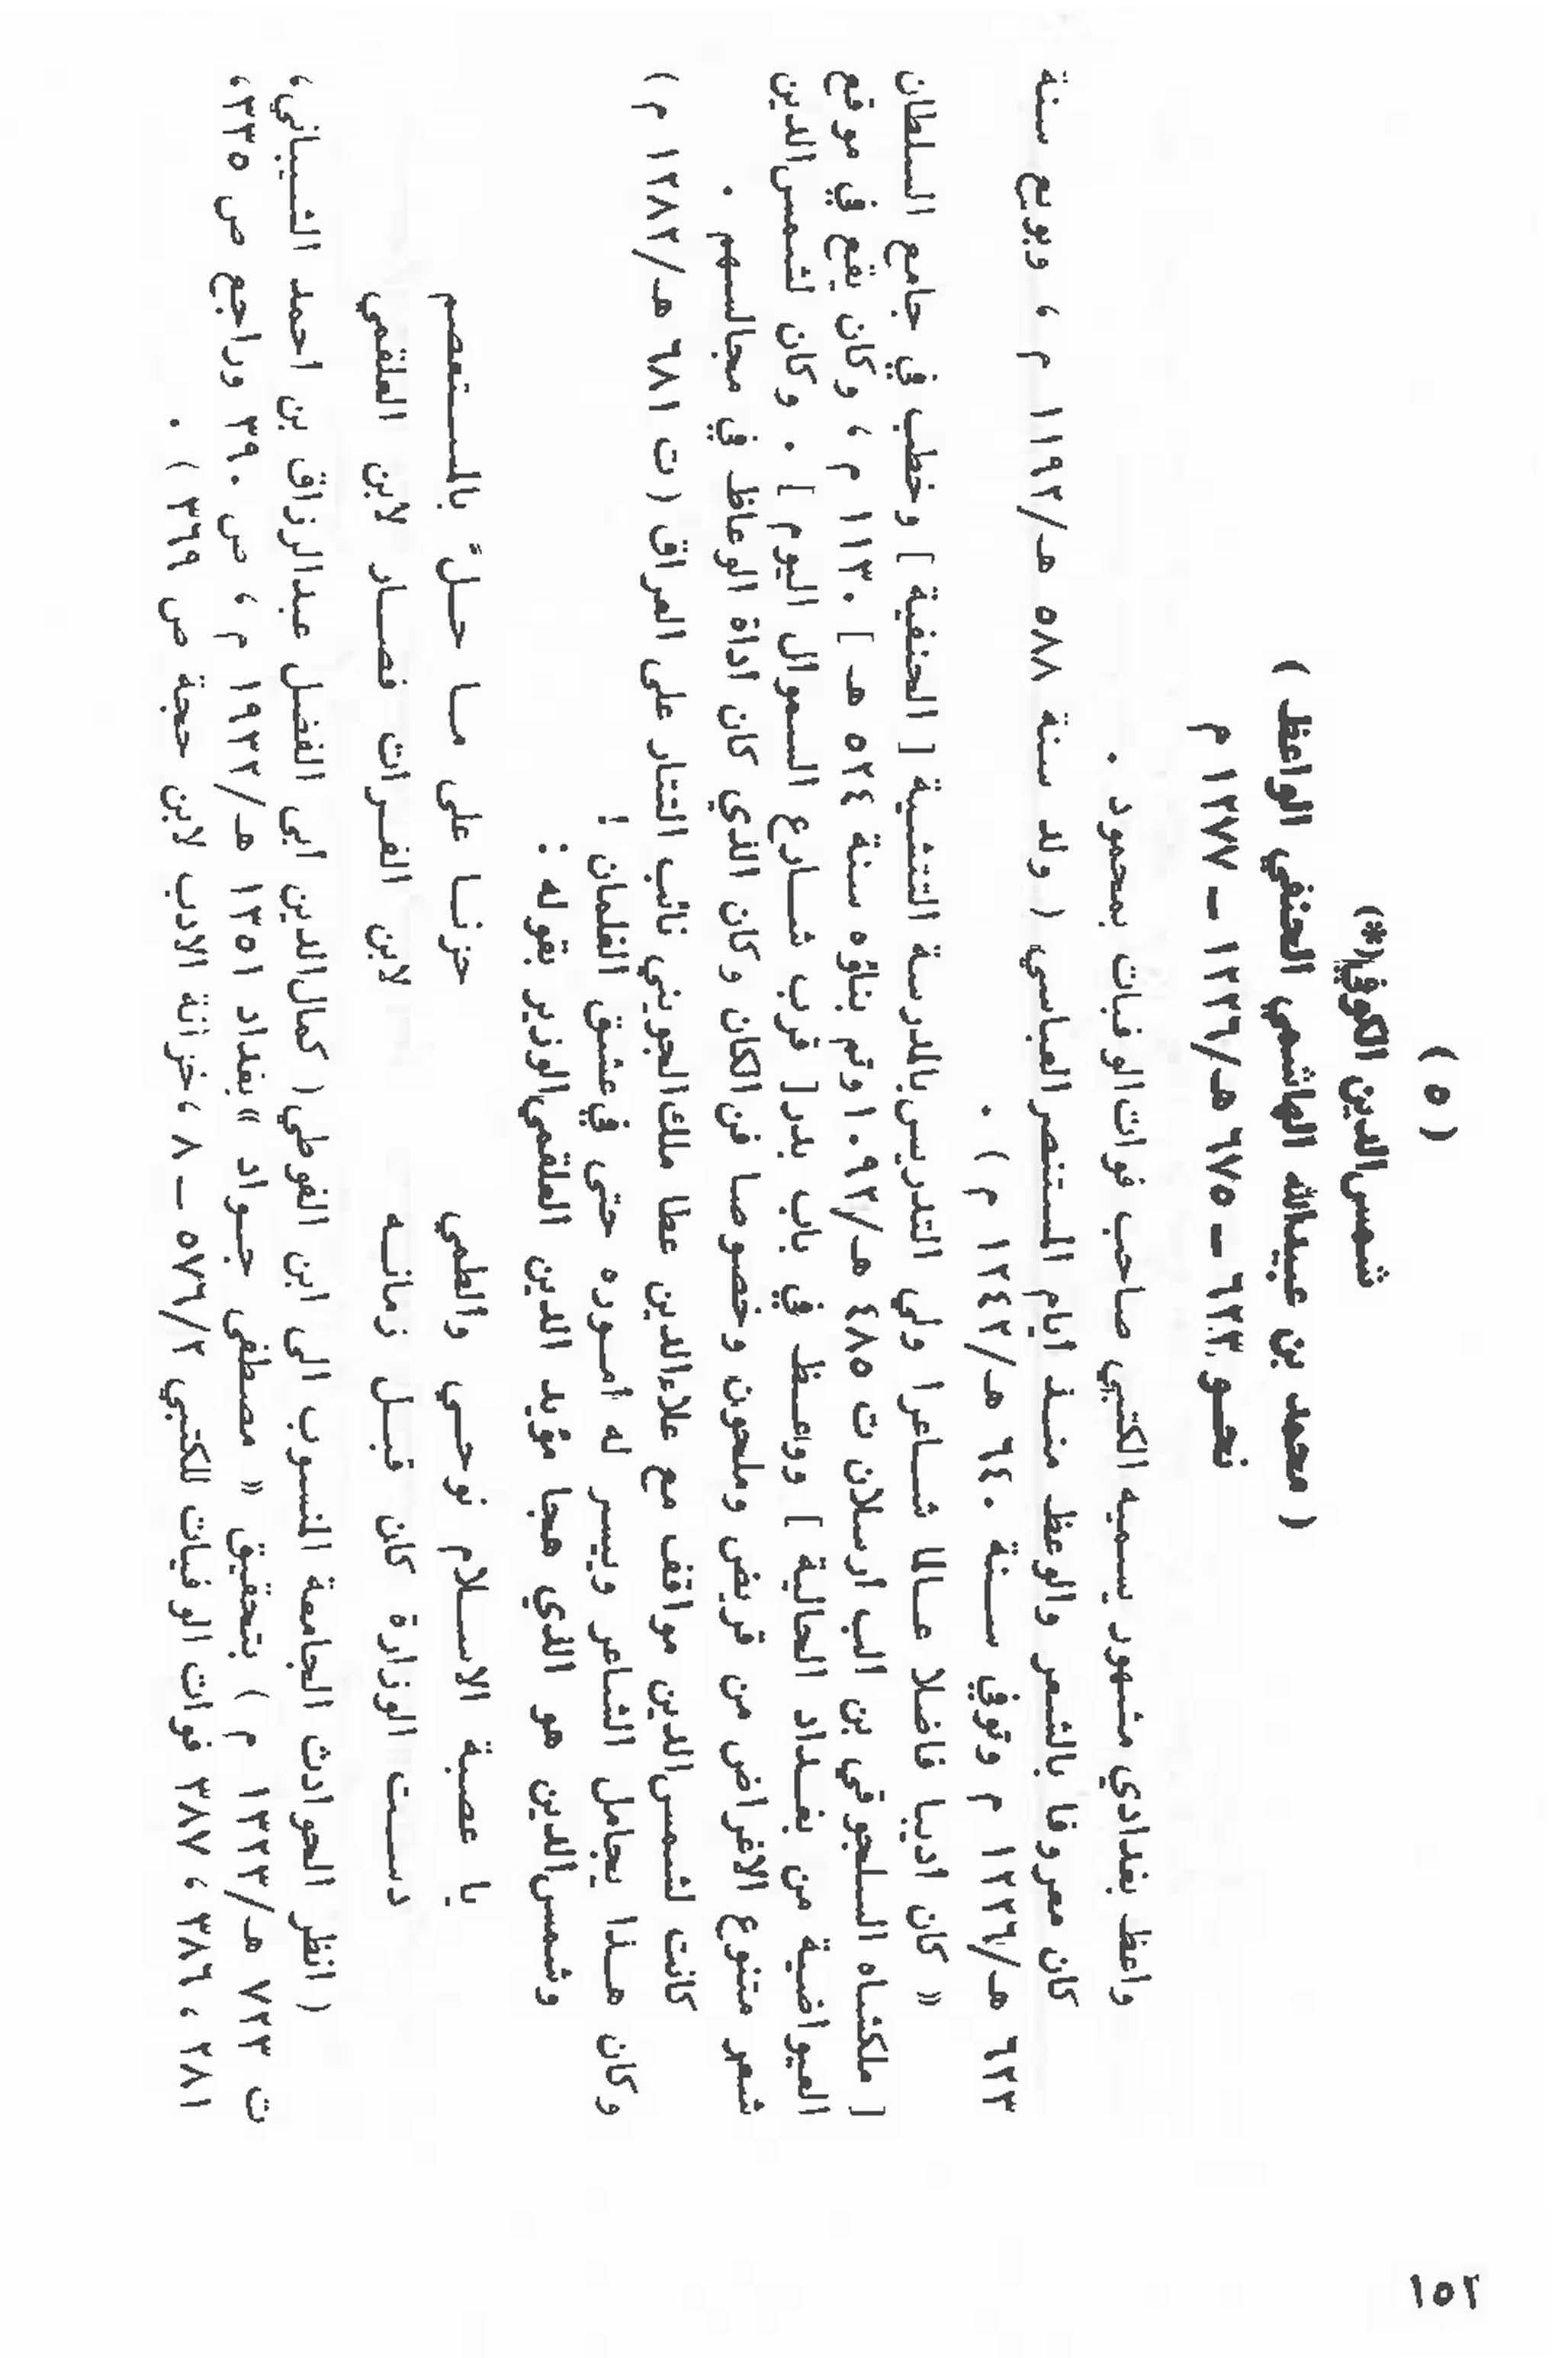 ( ٥ )
شمس‌الدين الكوفي(*)
( محمد بن عبيدالله الهاشمي الحنفي الواعظ )
نحو ٦٢٣ ـ ٦٧٥ هـ/١٢٢٦ ـ ١٢٧٧ م
واعظ بغدادي مشهور يسميه الكتبي صاحب فوات الوفيات بمحمود .
كان معروفا بالشعر والوعظ منـذ ايام المستنصر العباسي ( ولد سنة ٥٨٨ هـ/١١٩٢ م ، وبويع سنة
٦٢٣ هـ/١٢٢٦ م وتوفي سـنة ٦٤٠ هـ/١٢٤٢ م ) .
« كان اديبا فاضلا عـالما شـاعرا ولي التدريس بالمدرسة التتشية [ الحنفية ] وخطب في جامع السلطان
[ ملكشاه السلجوقي بن الب ارسلان ت ٤٨٥ هـ/١٠٩٢ وتم بناؤه سنة ٥٢٤ هـ ] ١١٣٠ م ، وكان يقع في موقع
العيواضية من بغـداد الحالية ] ووعـظ في باب بدر [ قرب شـارع السموال اليوم ] . وكان لشمس‌الدين
شعر متنوع الاغراض من قريض وملحون وخصوصا فن الكان وكان الذي كان اداة الوعاظ في مجالسهم .
كانت لشمس‌الدين مواقف مع علاءالدين عطا ملك الجويني نائب التتار على العراق ( ت ٦٨١ هـ/١٢٨٢ م )
وكان هـذا يجامل الشاعر وييسر له امـوره حتى في عشق الغلمان !
وشمس‌الدين هو الذي هجا مؤيد الدين العلقمي الوزير بقوله :
يا عصبة الاسـلام نوحـي والطمي حزنـا على مـا حـلّ بالمسـتعصم
دسـت الوزارة كان قبـل زمانـه لابن الفـرات فصـار لابن العلقمي
( انظر الحوادث الجامعة المنسوب الى ابن الفوطي ( كمال‌الدين ابي الفضل عبدالرزاق بن احمد الشـيباني ،
ت ٧٢٣ هـ/١٣٢٣ م ) بتحقيق « مصطفى جـواد » بغداد ١٣٥١ هـ/١٩٣٢ م ، ص ٣٩٠ وراجع ص ٣٣٥ ،
٢٨١ ، ٣٨٦ ، ٣٨٧ فوات الوفيات للكتبي ٥٧٦/٢ ـ ٨ ، خزانة الادب لابن حجة ص ٣٦٩ ) .
١٥٢